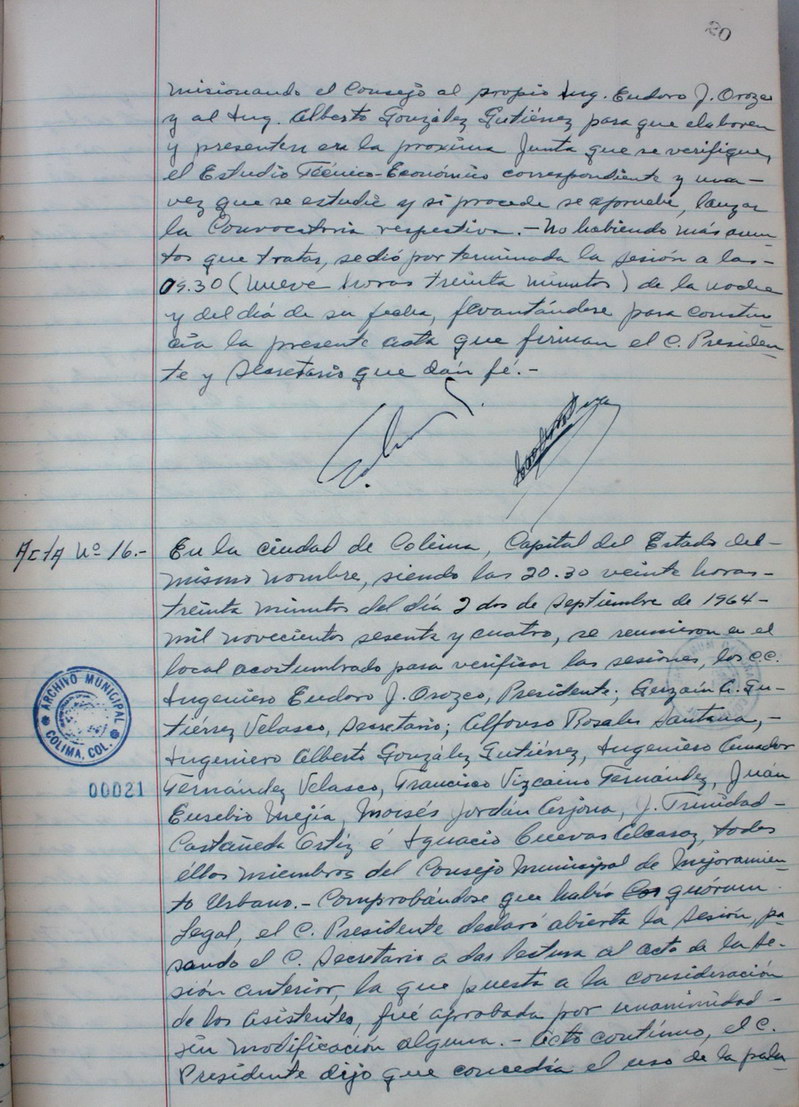 20
misionando el Consejo al propio Ing. Eudoro J. Orozco
y al Ing. Alberto González Gutiérrez para que elaboren
y presenten en la proxima Junta que se verifique,
el Estudio Técnico-Económico correspondiente y una-
vez que se estudie y si procede se apruebe, lanzar
la Convocatoria respectiva.- No habiendo más asun-
tos que tratar, se dió por terminada la sesión a las-
09.30 (nueve horas treinta minutos) de la noche
y del día de su fecha, levantándose para constan-
cia la presente acta que firman el C. Presiden-
te y Secretario que dán fé.-
Acta Nº 16.-
En la ciudad de Colima, Capital del Estado del-
mismo nombre, siendo las 20.30 veinte horas-
treinta minutos del día 2 dos de septiembre de 1964-
mil novecientos sesenta y cuatro, se reunieron en el
local acostumbrado para verificar las sesiones, los CC.
Ingeniero Eudoro J. Orozco, Presidente; A. Gu-
tiérrez Velasco, Secretario; Alfonso Rosales Santana,-
Ingeniero Alberto González Gutiérrez, Ingeniero Amador
Fernández Velasco, Francisco Vizcaino Fernández, Juán
Eusebio Mejía, Moisés Jordán Arjona, J. Trinidad-
Castañeda Ortiz é Ignacio Cuevas Alcaraz, todos
éllos miembros del Consejo Municipal de Mejoramien-
to Urbano.- Comprobándose que había quórum
Legal, el C. Presidente declaró abierta la sesión, pa
sando el C. Secretario a dar lectura al acta de la Se-
sión anterior, la que puesta a la consideración
de los asistentes, fué aprobada por unanimidad-
sin modificación alguna.- Acto contínuo, el C.
Presidente dijo que concedía el uso de la pala
ARCHIVO MUNICIPAL
COLIMA, COL.
00021